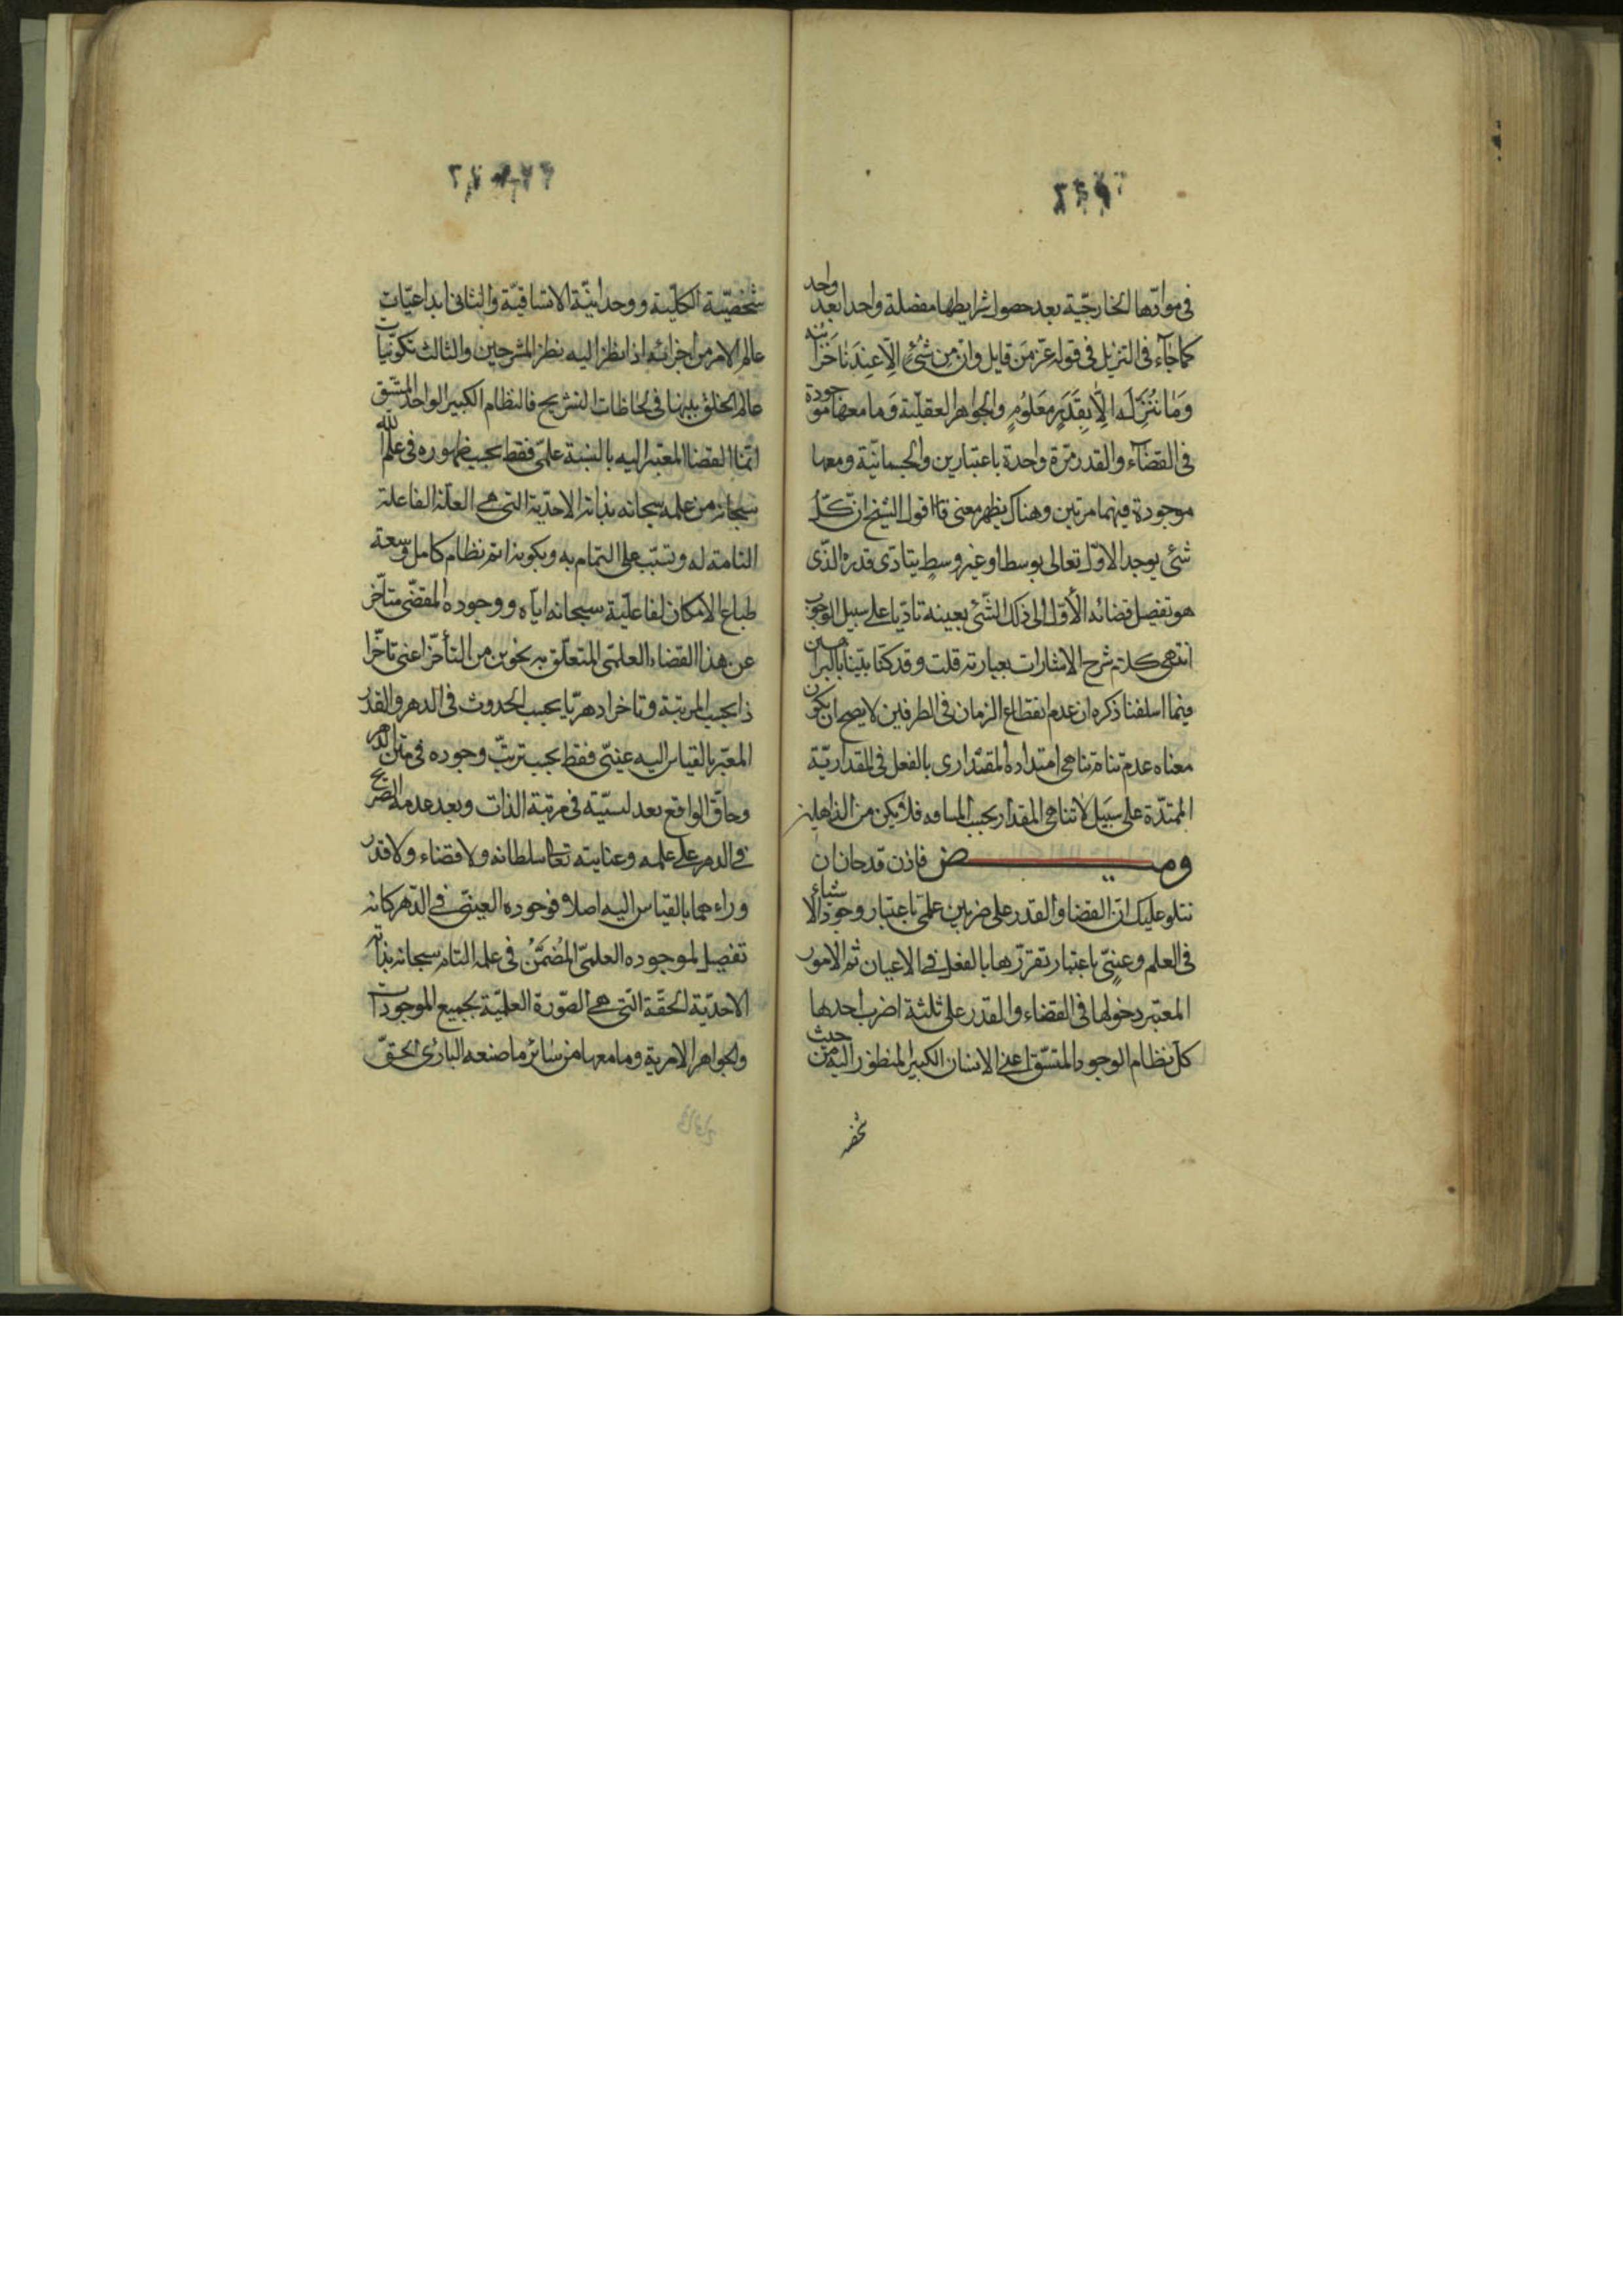 في موادّها الخارجيّة بعد حصول شرايطها مفصّلة واحدا بعد واحد
كما جاء في التنزيل في قوله عزّ من قايل وان من شئ الّا عندنا خزائنه
وما ننزله الّا بقدر معلوم والجواهر العقليّة وما معها موجودة
في القضاء والقدر مرّة واحدة باعتبارين والجسمانيّة ومعها
موجودة فيهما مرتين وهناك يظهر معنى قول الشيخ ان كلّ
شئ يوجد الاوّل تعالى بوسط او غير وسط يتادّى قدره الّذى
هو تفصيل قضائه الأوّل الى ذلك الشّئ بعينه تاديا على سبيل الوجوب
انتهى كلام شرح الاشارات بعبارته قلت وقد كنّا بيّنا بالبراهين
فيما اسلفنا ذكره ان عدم انقطاع الزمان في الطرفين لا يصح ان يكون
معناه عدم تناهى امتداده المقدارى بالفعل في المقداريّة
الممتدّة على سبيل لا تناهى المقدار بحسب المسافه فلا تكن من الذاهلين
وميض فاذن قد حان ان
نتلو عليك انّ القضا والقدر على ضربين علمىّ باعتبار وجود الاشياء
في العلم وعينىّ باعتبار تقرّرها بالفعل في الاعيان ثم الامور
المعتبر دخولها في القضاء والقدر على ثلثة اضرب احدها
كل نظام الوجود المتسّق اعنى الانسان الكبير المنظور اليه من حيث
شخصيّته الكلّية ووحدانيّته الاتساقيّة والثانى ابداعيّات
عالم الامر من اجزائه اذا نظر اليه نظر المشرحين والثالث تكوّنيّات
عالم الخلق بينها في لحاظات التشريح فالنظام الكبير الواحد المتّسق
انّما القضا المعتبر اليه بالنسبة علمىّ فقط بحسب ظهوره في علم الله
سبحانه من علمه سبحانه بذاته الاحديّة التى هى العلّة الفاعلة
التامة له وتسبّب على التمام به وبكونه اتم نظام كامل وسعة
طباع الامكان لفاعليّة سبحانه ايّاه ووجوده المقضّى متأخّر
عن هذا القضاء العلمّى المتعلّق به بنحوين من التأخّر اعنى تاخّرا
ذا بحسب المرتبة وتاخرا دهريّا بحسب الحدوث في الدهر والقدر
المعتبر بالقياس اليه عينىّ فقط بحسب ترتّب وجوده في متن الدهر
وحاقّ الواقع بعد ليسيّته في مرتبة الذات وبعد عدمه الصريح
في الدهر على علمه وعنايته تعالى سلطانه ولا قضاء ولا قدر
وراءهما بالقياس اليه اصلا فوجوده العينى في الدّهر كانه
تفصيل لموجوده العلمىّ المُضَمّن في علمه التام سبحانه بذاته
الاحديّة الحقّة الّتى هى الصّورة العلميّة بجميع الموجودات
والجواهر الامرية وما معها من سائر ما صنعه البارئ الحقّ